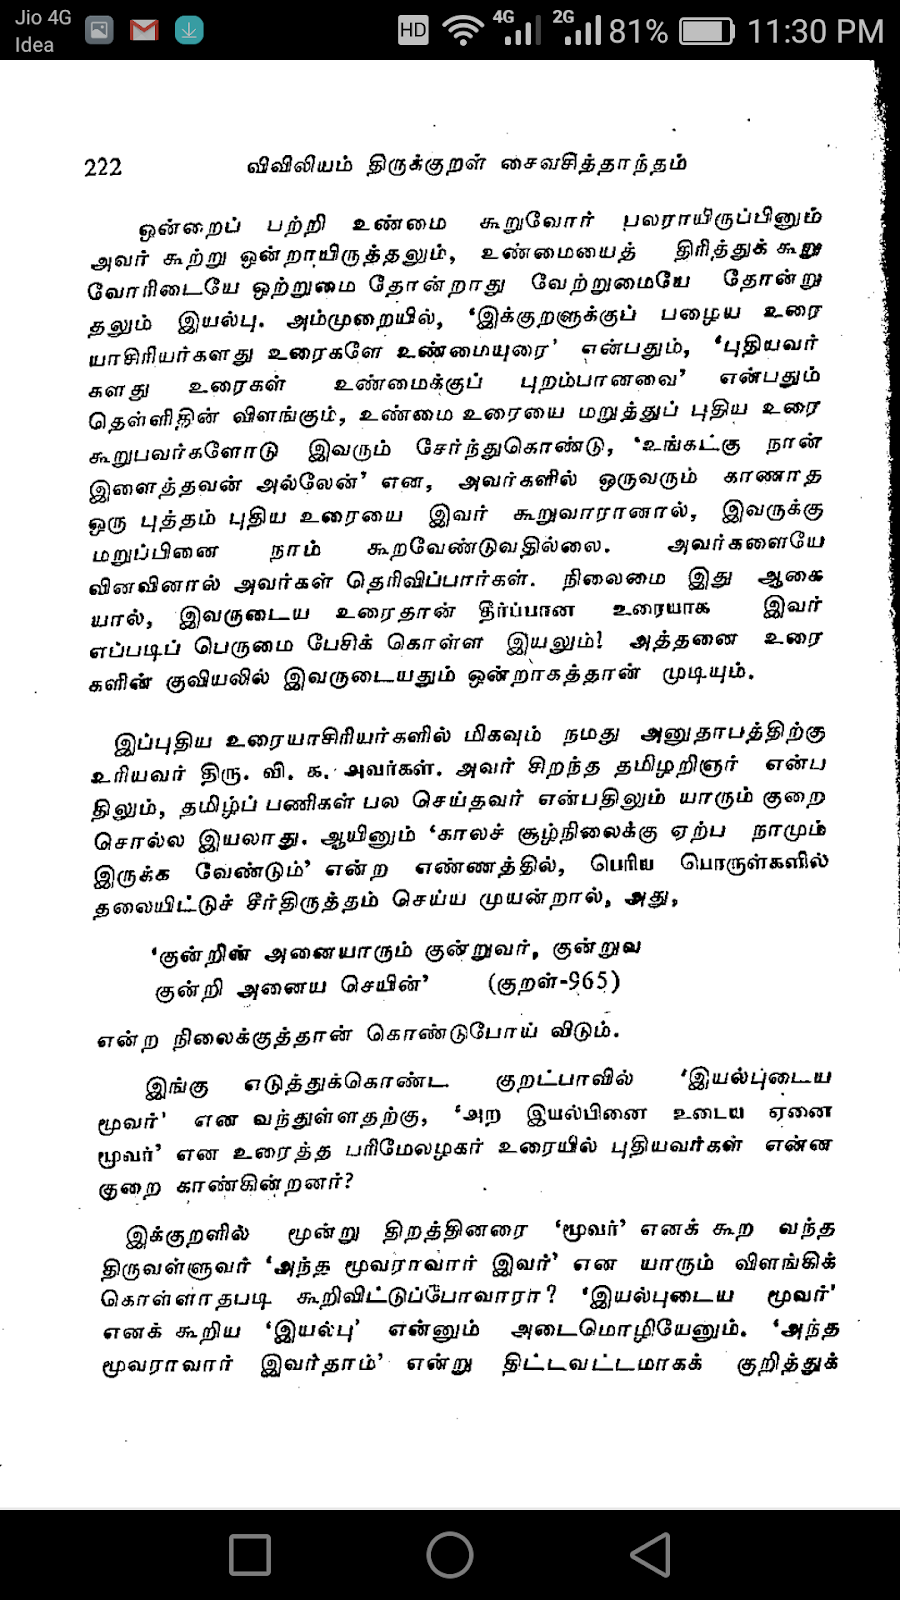 Jio 4G
Idea
HD 4G 2G 81% 11:30 PM
222 விவிலியம் திருக்குறள் சைவசித்தாந்தம்
ஒன்றைப் பற்றி உண்மை கூறுவோர் பலராயிருப்பினும்
அவர் கூற்று ஒன்றாயிருத்தலும், உண்மையைத் திரித்துக் கூறு
வோரிடையே ஒற்றுமை தோன்றாது வேற்றுமையே தோன்று
தலும் இயல்பு. அம்முறையில், ‘இக்குறளுக்குப் பழைய உரை
யாசிரியர்களது உரைகளே உண்மையுரை’ என்பதும், ‘புதியவர்
களது உரைகள் உண்மைக்குப் புறம்பானவை’ என்பதும்
தெள்ளிதின் விளங்கும், உண்மை உரையை மறுத்துப் புதிய உரை
கூறுபவர்களோடு இவரும் சேர்ந்துகொண்டு, ‘உங்கட்கு நான்
இளைத்தவன் அல்லேன்’ என, அவர்களில் ஒருவரும் காணாத
ஒரு புத்தம் புதிய உரையை இவர் கூறுவாரானால், இவருக்கு
மறுப்பினை நாம் கூறவேண்டுவதில்லை. அவர்களையே
வினவினால் அவர்கள் தெரிவிப்பார்கள். நிலைமை இது ஆகை
யால், இவருடைய உரைதான் தீர்ப்பான உரையாக இவர்
எப்படிப் பெருமை பேசிக் கொள்ள இயலும்! அத்தனை உரை
களின் குவியலில் இவருடையதும் ஒன்றாகத்தான் முடியும்.
இப்புதிய உரையாசிரியர்களில் மிகவும் நமது அனுதாபத்திற்கு
உரியவர் திரு. வி. க. அவர்கள். அவர் சிறந்த தமிழறிஞர் என்ப
திலும், தமிழ்ப் பணிகள் பல செய்தவர் என்பதிலும் யாரும் குறை
சொல்ல இயலாது. ஆயினும் ‘காலச் சூழ்நிலைக்கு ஏற்ப நாமும்
இருக்க வேண்டும்’ என்ற எண்ணத்தில், பெரிய பொருள்களில்
தலையிட்டுச் சீர்திருத்தம் செய்ய முயன்றால், அது,
‘குன்றின் அனையாரும் குன்றுவர், குன்றுவ
குன்றி அனைய செயின்’ (குறள்-965)
என்ற நிலைக்குத்தான் கொண்டுபோய் விடும்.
இங்கு எடுத்துக்கொண்ட குறட்பாவில் ‘இயல்புடைய
மூவர்’ என வந்துள்ளதற்கு, ‘அற இயல்பினை உடைய ஏனை
மூவர்’ என உரைத்த பரிமேலழகர் உரையில் புதியவர்கள் என்ன
குறை காண்கின்றனர்?
இக்குறளில் மூன்று திறத்தினரை ‘மூவர்’ எனக் கூற வந்த
திருவள்ளுவர் ‘அந்த மூவராவார் இவர்’ என யாரும் விளங்கிக்
கொள்ளாதபடி கூறிவிட்டுப்போவாரா? ‘இயல்புடைய மூவர்’
எனக் கூறிய ‘இயல்பு’ என்னும் அடைமொழியேனும். ‘அந்த
மூவராவார் இவர்தாம்’ என்று திட்டவட்டமாகக் குறித்துக்